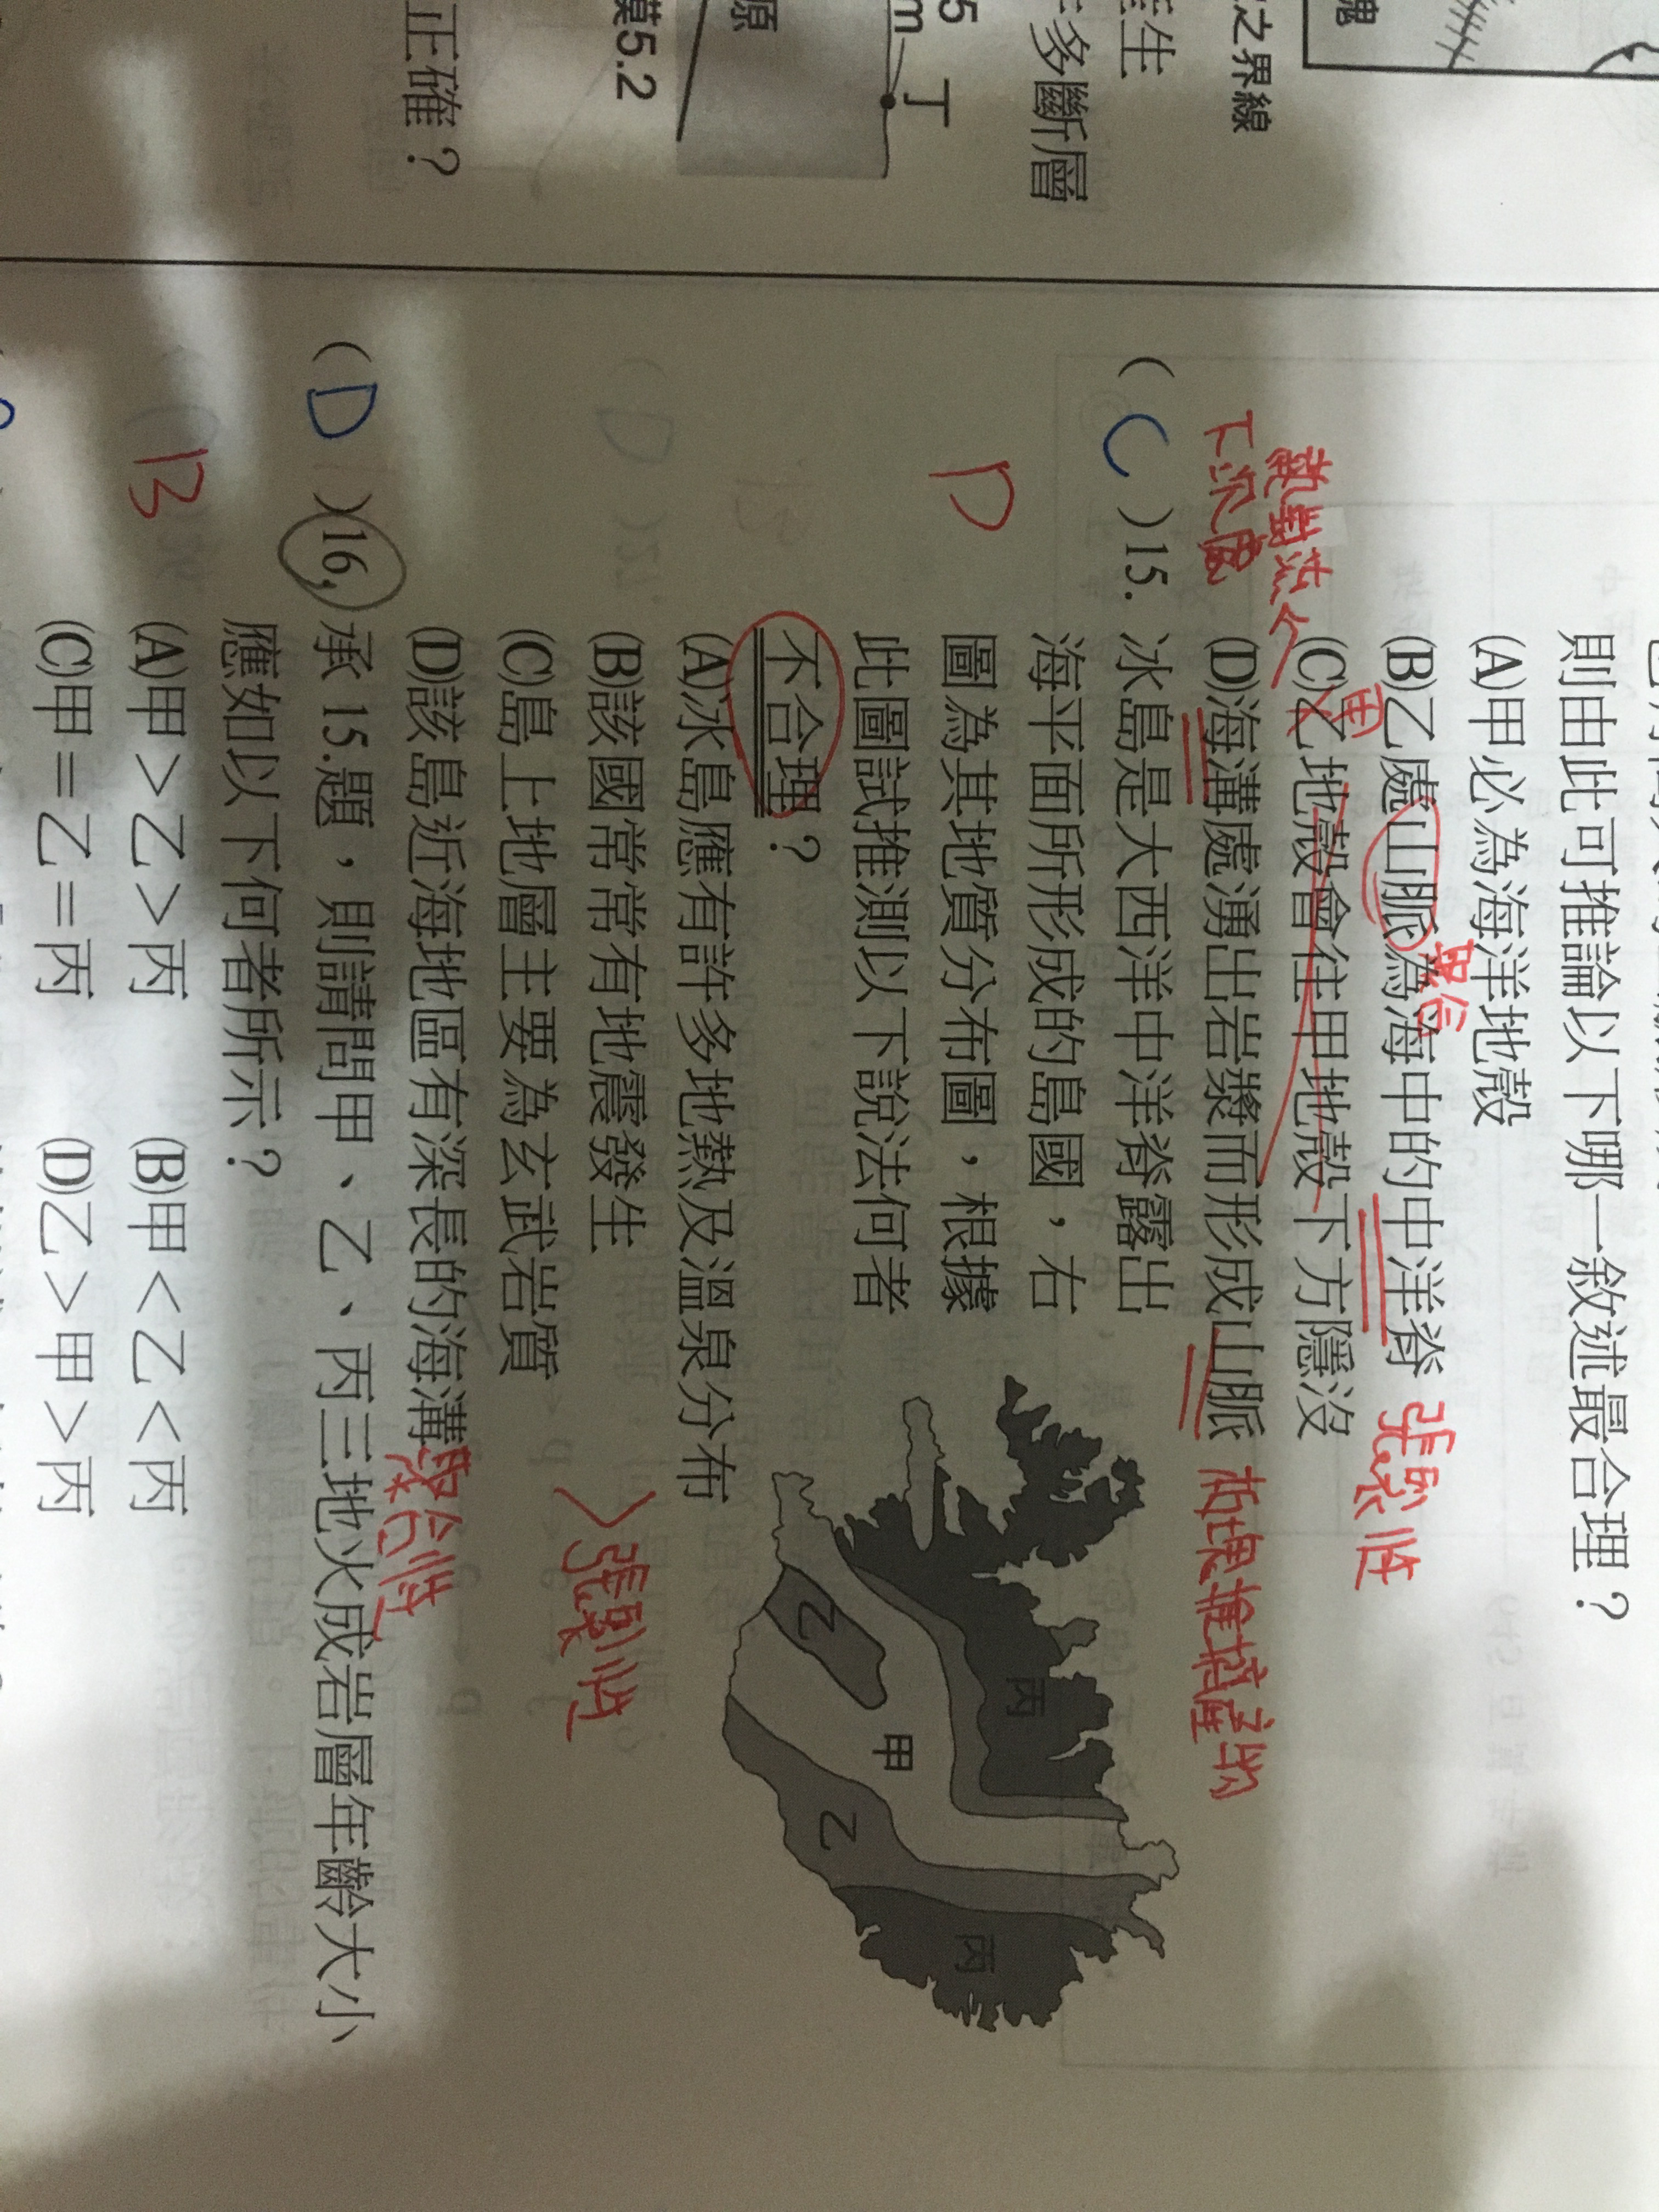 塊
之界線
生
多斷層
5 丁
m
原
莫5.2
正確？
則由此可推論以下哪一敘述最合理？
(A)甲必為海洋地殼
聚合
(B)乙處山脈為海中的中洋脊 張裂性
(C)乙地殼會往甲地殼下方隱沒
(D)海溝處湧出岩漿而形成山脈
下沉處
( C )15. 冰島是大西洋中洋脊露出
海平面所形成的島國，右
圖為其地質分布圖，根據
此圖試推測以下說法何者
不合理？
D
(A)冰島應有許多地熱及溫泉分布
(B)該國常常有地震發生
(C)島上地層主要為玄武岩質
＞張裂性
(D)該島近海地區有深長的海溝 聚合性
丙
甲
乙
乙
丙
( D )16. 承 15.題，則請問甲、乙、丙三地火成岩層年齡大小
應如以下何者所示？
B
(A)甲＞乙＞丙 (B)甲＜乙＜丙
(C)甲＝乙＝丙 (D)乙＞甲＞丙